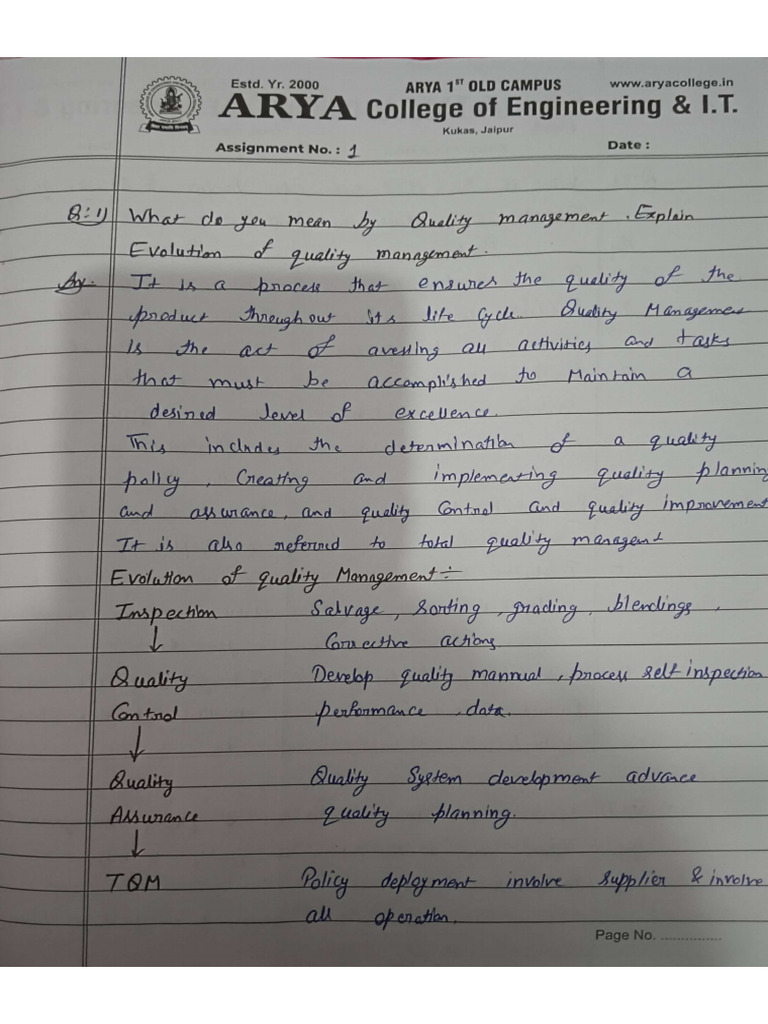 Estd. Yr. 2000 ARYA 1ST OLD CAMPUS www.aryacollege.in
ARYA College of Engineering & I.T.
Kukas, Jaipur
Assignment No. : 1 Date :
Q:1) What do you mean by Quality management. Explain
Evolution of quality management.
Ans. It is a process that ensures the quality of the
product throughout its life Cycle. Quality Managemen
is the act of avesting all activities and tasks
that must be accomplished to Maintain a
desired level of excellence.
This includes the determination of a quality
policy, Creating and implementing quality planning
and assurance, and quality Control and quality improvement
It is also referred to total quality managent
Evolution of quality Management:-
Inspection Salvage, Sorting, grading, blendings,
↓ Corrective actions
Quality Develop quality mannual, process self inspection
Control performance data.
↓
Quality Quality System development advance
Assurance quality planning.
↓
TQM Policy deployment involve supplier & involve
all operation.
Page No. ...............